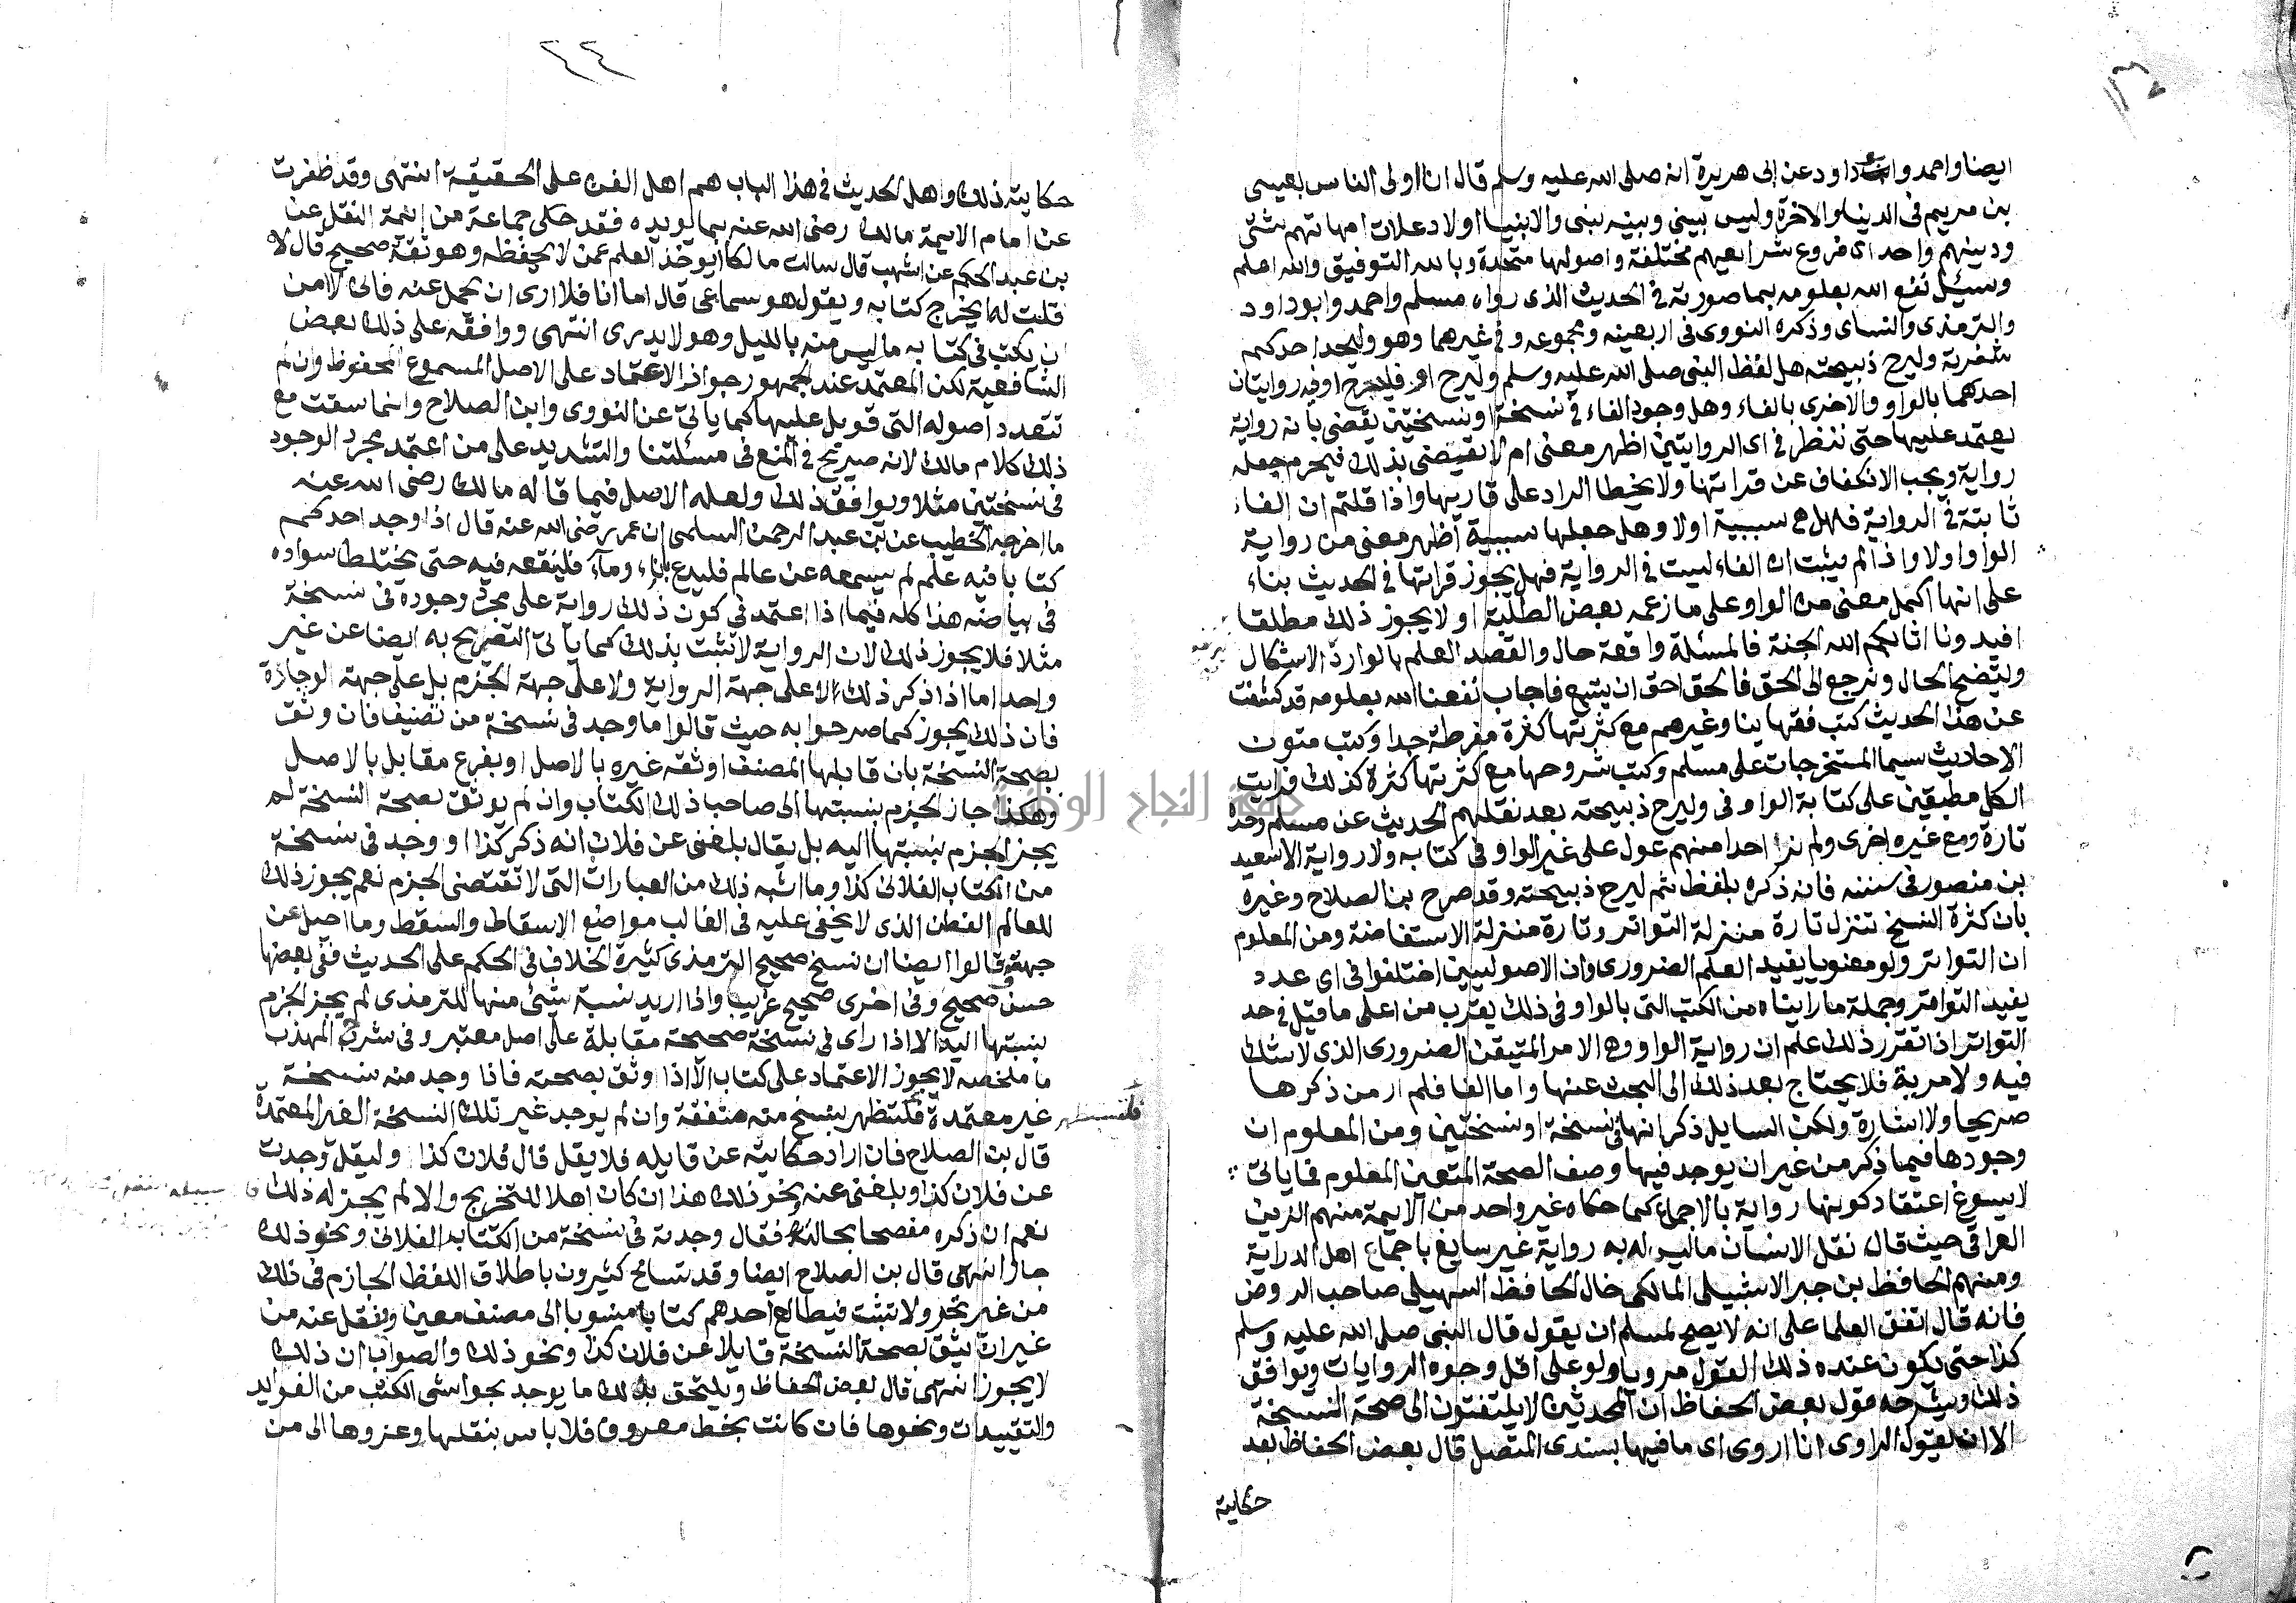 ايضا واحمد وابو داود عن ابى هريرة انه صلى الله عليه وسلم قال انا اولى الناس بعيسى
بن مريم فى الدينا والاخرة وليس بينى وبينه نبى والانبيا اولاد علات امهاتهم شتى
ودينهم واحد اى فروع شرايعهم مختلفة واصولها متحدة وبالله التوفيق والله اعلم
وسيل نفع الله بعلومه بما صورته فى الحديث الذى رواه مسلم واحمد وابو داود
والترمذى والنساى وذكره النووى فى اربعينه ومجموعه وفى غيرهما وهو وليحد احدكم
شفرته وليرح ذبيحته هل لفظ النبى صلى الله عليه وسلم وليرح او فليرح او فيه روايتان
احدهما بالواو والاخرى بالفاء وهل وجود الفاء فى نسخة او نسختين يقضى بانه رواية
يعتمد عليها حتى ننظر فى اى الروايتين اظهر معنى ام لا يقيضى بذلك فيحرم جعله
رواية ويجب الانكفاف عن قراتها ولا يخطا الراد على قاريها واذا قلتم ان الفاء
ثابتة فى الرواية فهل هى سببية اولا وهل جعلها سببية اظهر معنى من رواية
الواو اولا واذا لم يثبت ان الفاء ليست فى الرواية فهل يجوز قراتها فى الحديث بناء
على انها اكمل معنى من الواو على ما زعمه بعض الطلبة او لا يجوز ذلك مطلقا
افيدونا اثابكم الله الجنة فالمسئلة واقعة حال والقصد العلم بالوارد الاشكال
وليتضح الحال ونرجع الى الحق فالحق احق ان يتبع فاجاب نفعنا الله بعلومه قد كشفت
عن هذا الحديث كتب فقهاينا وغيرهم مع كثرتها كثرة مفرطة جدا وكتب متون
الاحاديث سيما المستخرجات على مسلم وكتب شروحها مع كثرتها كثرة كذلك فرايت
الكل مطبقين على كتابة الواو فى وليرح ذبيحته بعد نقلهم الحديث عن مسلم وحده
تارة ومع غيره اخرى ولم نرا احدا منهم عول على غير الواو فى كتابه ولا رواية الا سعيد
بن منصور فى سننه فانه ذكره بلفظ ثم ليرح ذبيحته وقد صرح بن الصلاح وغيره
بان كثرة النسخ تنزل تارة منزلة التواتر وتارة منزلة الاستفاضة ومن المعلوم
ان التواتر ولو معنويا يفيد العلم الضرورى وان الاصوليين اختلفوا فى اى عدد
يفيد التواتر وجملة ما رايناه من الكتب التى بالواو فى ذلك يقرب من اعلى ما قيل فى حد
التواتر اذا تقرر ذلك علم ان رواية الواو وهى الامر المتيقن الضرورى الذى لا شك
فيه ولا مرية فلا يحتاج بعد ذلك الى البحث عنها واما الفا فلم ار من ذكرها
صريحا ولا اشارة ولكن السايل ذكر انها فى نسخة او نسختين ومن المعلوم ان
وجودها فيما ذكر من غير ان يوجد فيها وصف الصحة المتعين المعلوم مما ياتى
لا يسوغ اعتقاد كونها رواية بالاجماع كما حكاه غير واحد من الايمة منهم الزين
العراقى حيث قال نقل الانسان ما ليس له به رواية غير سايغ باجماع اهل الدراية
ومنهم الحافظ بن جبر الاشبيلى المالكى خال الحافظ السهيلى صاحب الروض
فانه قال اتفق العلما على انه لا يصح لمسلم ان يقول قال النبى صلى الله عليه وسلم
كذا حتى يكون عنده ذلك القول مرويا ولو على اقل وجوه الروايات ويوافق
ذلك ويشرحه قول بعض الحفاظ ان المحدثين لا يلتفتون الى صحة النسخة
الا ان يقول الراوى انا اروى اى ما فيها بسندى المتصل قال بعض الحفاظ بعد
حكاية
٢٤
حكايته ذلك واهل الحديث فى هذا الباب هم اهل الفن على الحقيقة انتهى وقد ظفرت
عن امام الايمة مالك رضى الله عنه بما يويده فقد حكى جماعة من ائمة النقل عن
بن عبد الحكم عن اشهب قال سالت مالكا ايوخذ العلم عمن لا يحفظه وهو ثقة صحيح قال لا
قلت له ايخرج كتابه ويقول هو سماعى قال اما انا فلا ارى ان يحمل عنه فانى لا امن
ان يكتب فى كتابه ما ليس منه بالليل وهو لا يدرى انتهى ووافقه على ذلك بعض
الشافعية لكن المعتمد عند الجمهور جواز الاعتماد على الاصل المسموع المحفوظ وان لم
تتعدد اصوله التى قوبل عليها كما ياتى عن النووى وابن الصلاح وانما سقت مع
ذلك كلام مالك لانه صريح فى المنع فى مسئلتنا والتشديد على من اعتمد مجرد الوجود
فى نسختين مثلا ويوافق ذلك ولعله الاصل فيما قاله مالك رضى الله عنه
ما اخرجه الخطيب عن بن عبد الرحمن السلمى ان عمر رضى الله عنه قال اذا وجد احدكم
كتابا فيه علم لم يسمعه عن عالم فليدع باناء وماء فلينقعه فيه حتى يختلط سواده
فى بياضه هذا كله فيما اذا اعتمد فى كون ذلك رواية على مجرد وجوده فى نسخة
مثلا فلا يجوز ذلك لان الرواية لا تثبت بذلك كما ياتى التصريح به ايضا عن غير
واحد اما اذا ذكر ذلك لا على جهة الرواية ولا على جهة الجزم بل على جهة الوجادة
فان ذلك يجوز كما صرحوا به حيث قالوا ما وجد فى نسخة من تصنيف فان وثق
بصحة النسخة بان قابلها المصنف او ثقة غيره بالاصل او بفرع مقابل بالاصل
وهكذا جاز الجزم بنسبتها الى صاحب ذلك الكتاب وان لم يوثق بصحة النسخة لم
يجز الجزم بنسبتها اليه بل يقال بلغنى عن فلان انه ذكر كذا او وجد فى نسخة
من الكتاب الفلانى كذا وما اشبه ذلك من العبارات التى لا تقتضى الجزم نعم يجوز ذلك
للعالم الفطن الذى لا يخفى عليه فى الغالب مواضع الاسقاط والسقط وما احيل عن
جهته وقالوا ايضا ان نسخ صحيح الترمذى كثيرة الخلاف فى الحكم على الحديث ففى بعضها
حسن صحيح وفى اخرى صحيح غريب واذا اريد نسبة شئ منها للترمذى لم يجز الجزم
بنسبتها اليه الا اذا راى فى نسخة صحيحة مقابلة على اصل معتبر وفى شرح المهذب
ما ملخصه لا يجوز الاعتماد على كتاب الا اذا وثق بصحته فاذا وجد منه نسخة
غير معتمدة فلتظهر بنسخ منه متفقة وان لم يوجد غير تلك النسخة الغير المعتمدة
قال بن الصلاح فان اراد حكايته عن قايله فلا يقل قال فلان كذا وليقل وجدت
عن فلان كذا وبلغنى عنه ونحو ذلك هذا ان كان اهلا للتخريج والا لم يجز له ذلك
نعم ان ذكره مفصحا بحاله فقال وجدته فى نسخة من الكتاب الفلانى ونحو ذلك
جاز انتهى قال بن الصلاح ايضا وقد تسامح كثيرون باطلاق اللفظ الجازم فى ذلك
من غير تحر ولا تثبت فيطالع احدهم كتابا منسوبا الى مصنف معين وينقل عنه من
غير ان يثق بصحة النسخة قايلا عن فلان كذا ونحو ذلك والصواب ان ذلك
لا يجوز انتهى قال بعض الحفاظ ويلتحق بذلك ما يوجد بحواشى الكتب من الفوايد
والتقييدات ونحوها فان كانت بخط معروف فلا باس بنقلها وعزوها الى من
جامعة النجاح الوطنية